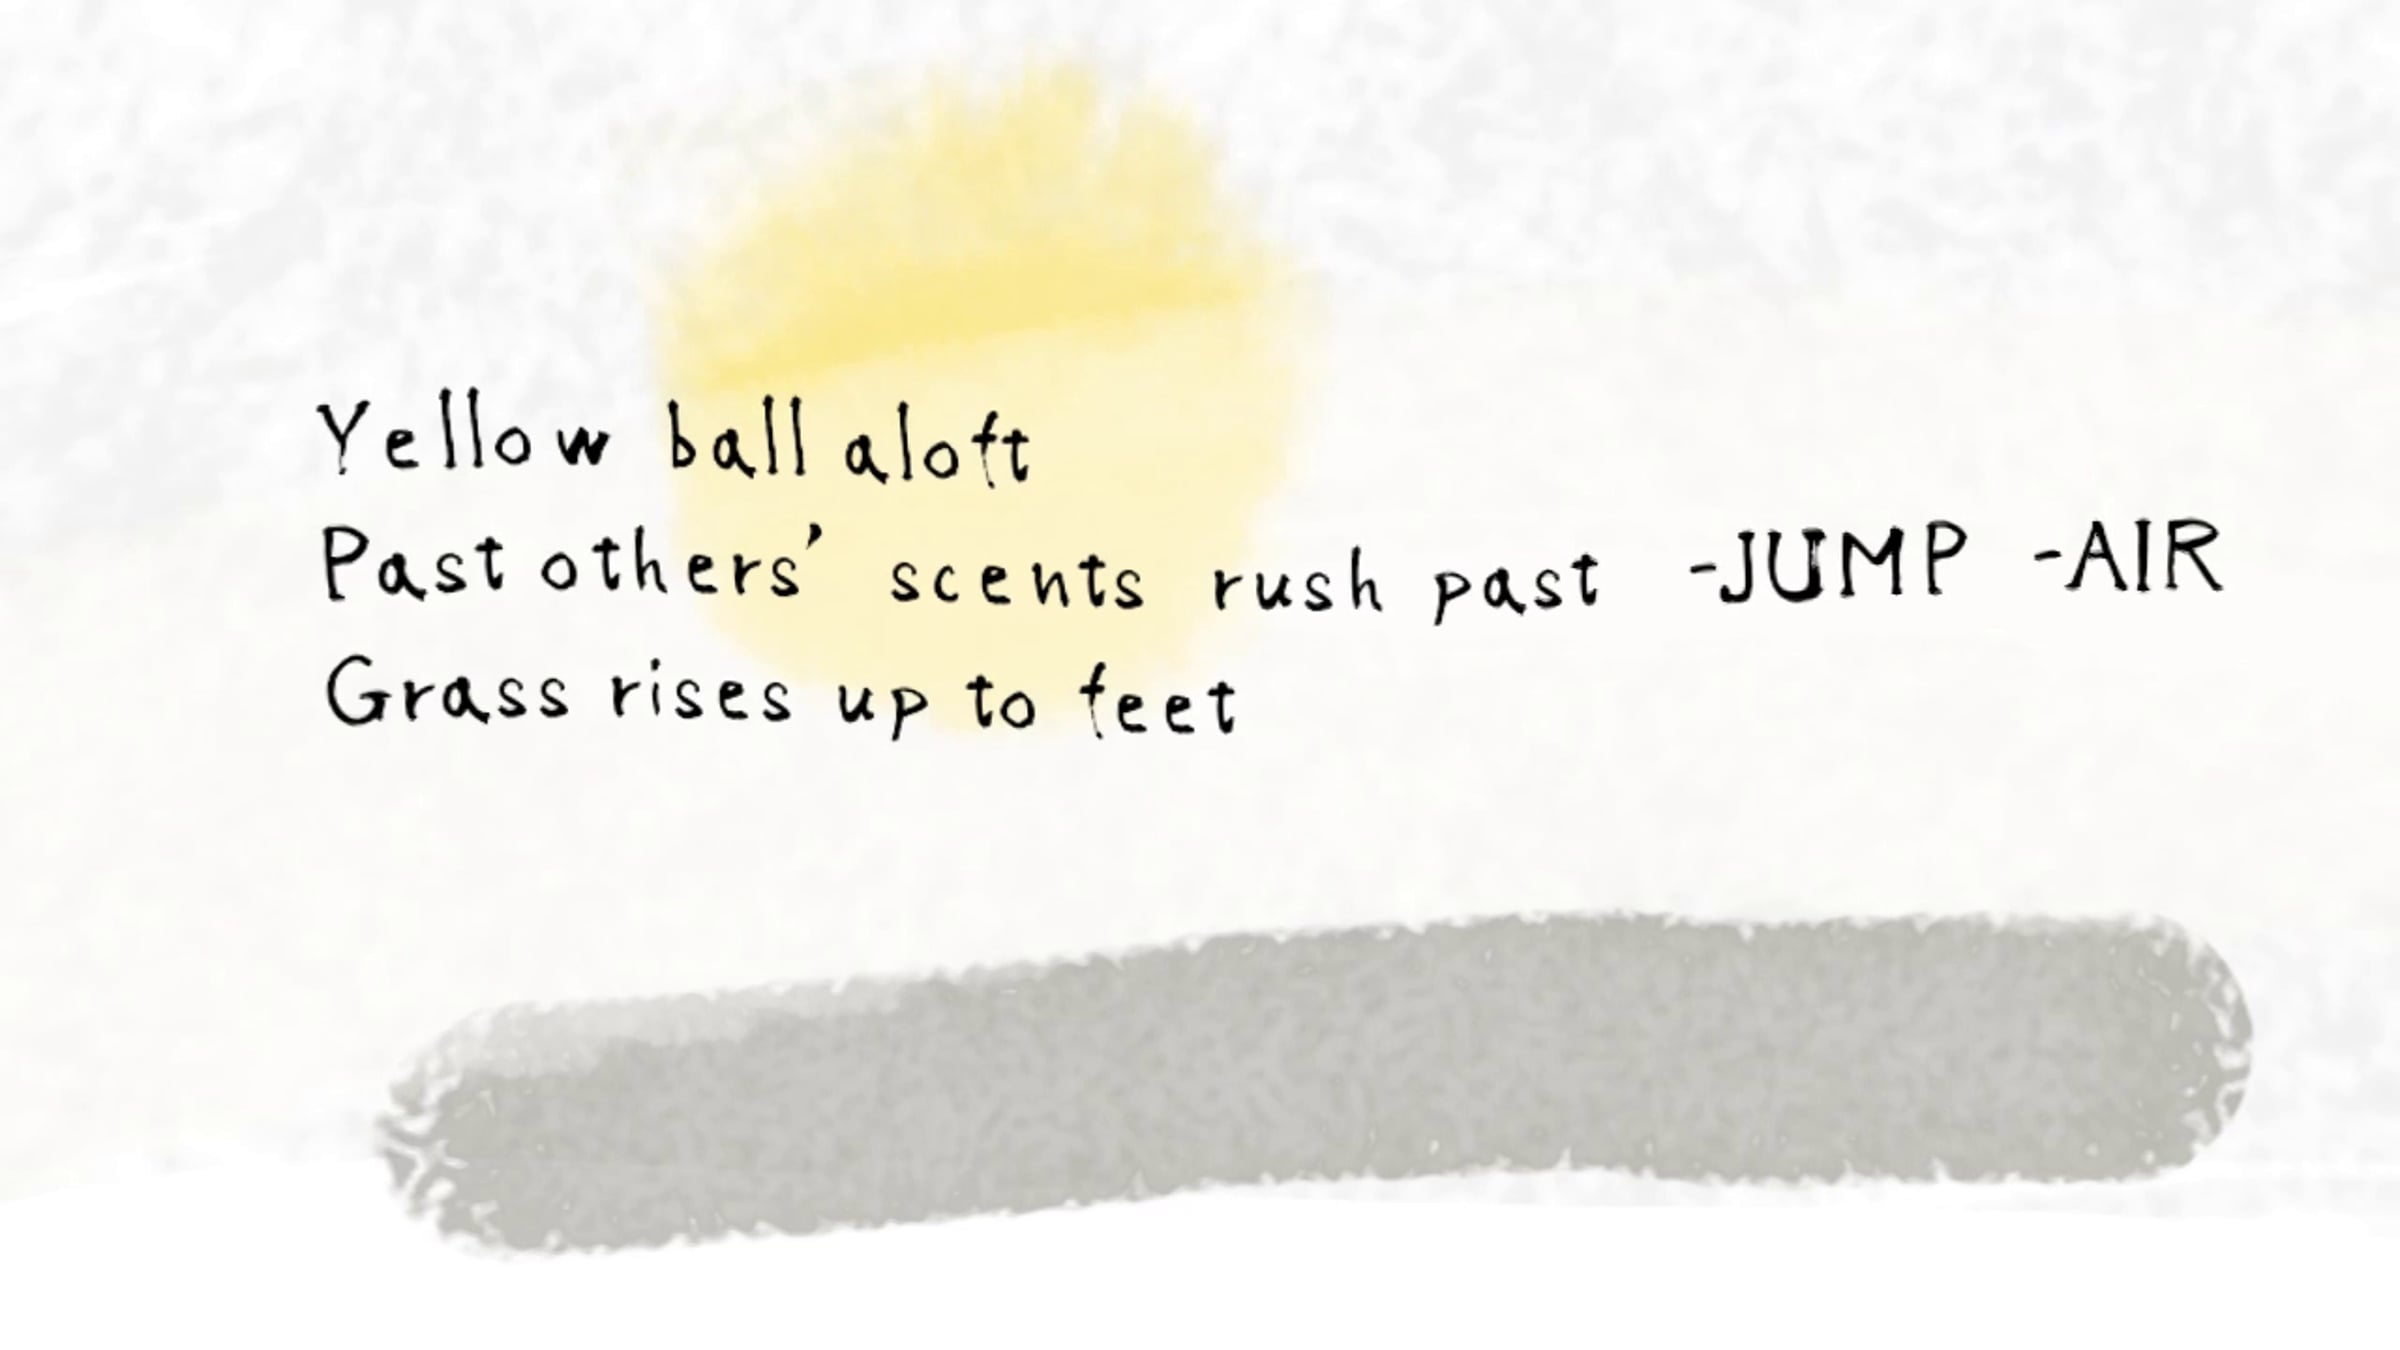 Yellow ball aloft
Past others’ scents rush past -JUMP -AIR
Grass rises up to feet